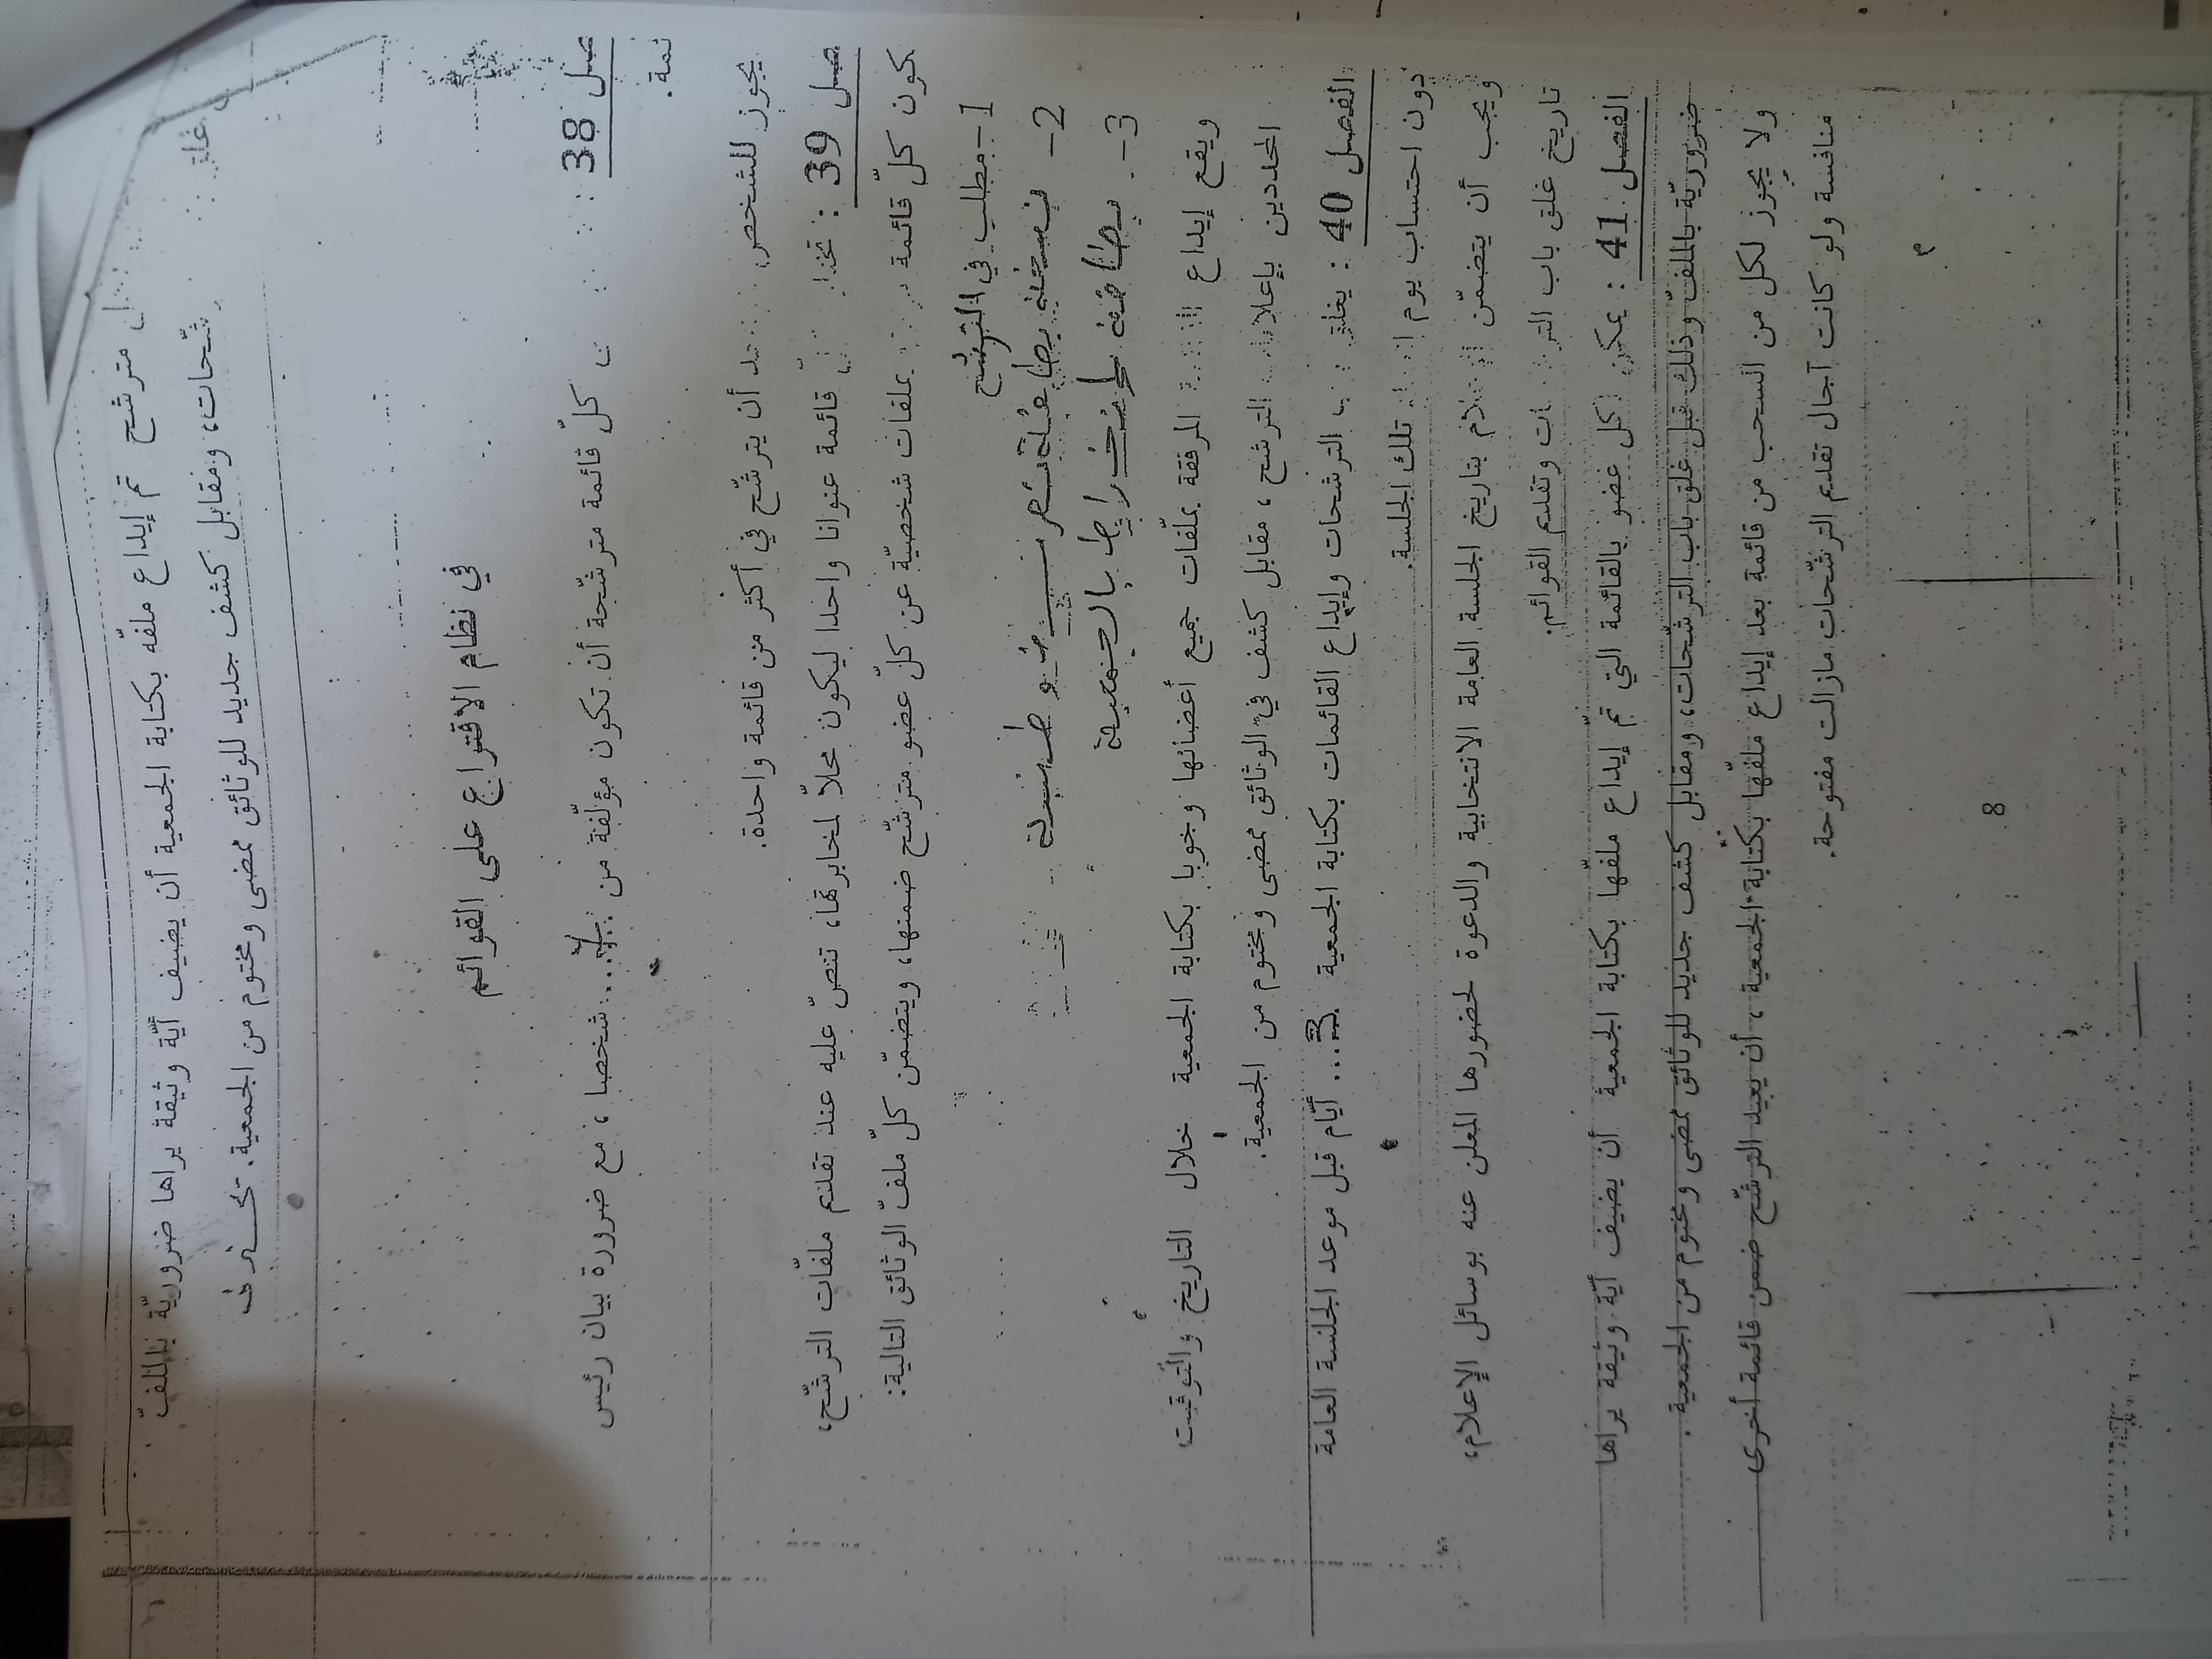 مترشح تم إيداع ملفّه بكتابة الجمعية أن يضيف أيّة وثيقة يراها ضروريّة بالملفّ
غلق
شّحات، ومقابل كشف جديد للوثائق ممضى ومختوم من الجمعية.
في نظام الاقتراع على القوائم
صل 38 : كلّ قائمة مترشّحة أن تكون مؤلّفة من شخصا، مع ضرورة بيان رئيس
ئمة.
يجوز للشخص أن يترشّح في أكثر من قائمة واحدة.
صل 39 : قائمة عنوانا واحدا ليكون محلاّ لمخابرتها، تنصّ عليه عند تقديم ملفّات الترشّح،
كون كلّ قائمة بملفات شخصيّة عن كلّ عضو مترشّح ضمنها، ويتضمّن كلّ ملفّ الوثائق التالية:
1-مطلب في الترشح
2- نسخة بطاقة تعريف وطنية
3- بطاقة انخراط بالجمعية
ويقع إيداع المرفقة بملّفات جميع أعضائها وجوبا بكتابة الجمعية خلال التاريخ والتوقيت
المحددين بإعلان الترشح، مقابل كشف في الوثائق ممضى ومختوم من الجمعية.
الفصل 40 : يغلق الترشحات وإيداع القائمات بكتابة الجمعية ...3 أيّام قبل موعد الجلسة العامة
دون احتساب يوم تلك الجلسة.
ويجب أن يتضمّن بتاريخ الجلسة العامة الانتخابية والدعوة لحضورها المعلن عنه بوسائل الإعلام،
تاريخ غلق باب وتقديم القوائم.
الفصل 41 : يمكن لكل عضو بالقائمة التي تمّ إيداع ملفّها بكتابة الجمعية أن يضيف أيّة وثيقة يراها
ضروريّة بالملفّ وذلك قبل غلق باب الترشّحات، ومقابل كشف جديد للوثائق ممضى ومختوم من الجمعية.
ولا يجوز لكل من انسحب من قائمة بعد إيداع ملفّها بكتابة الجمعية، أن يعيد الترشّح ضمن قائمة أخرى
منافسة ولو كانت آجال تقديم الترشّحات مازالت مفتوحة.
8